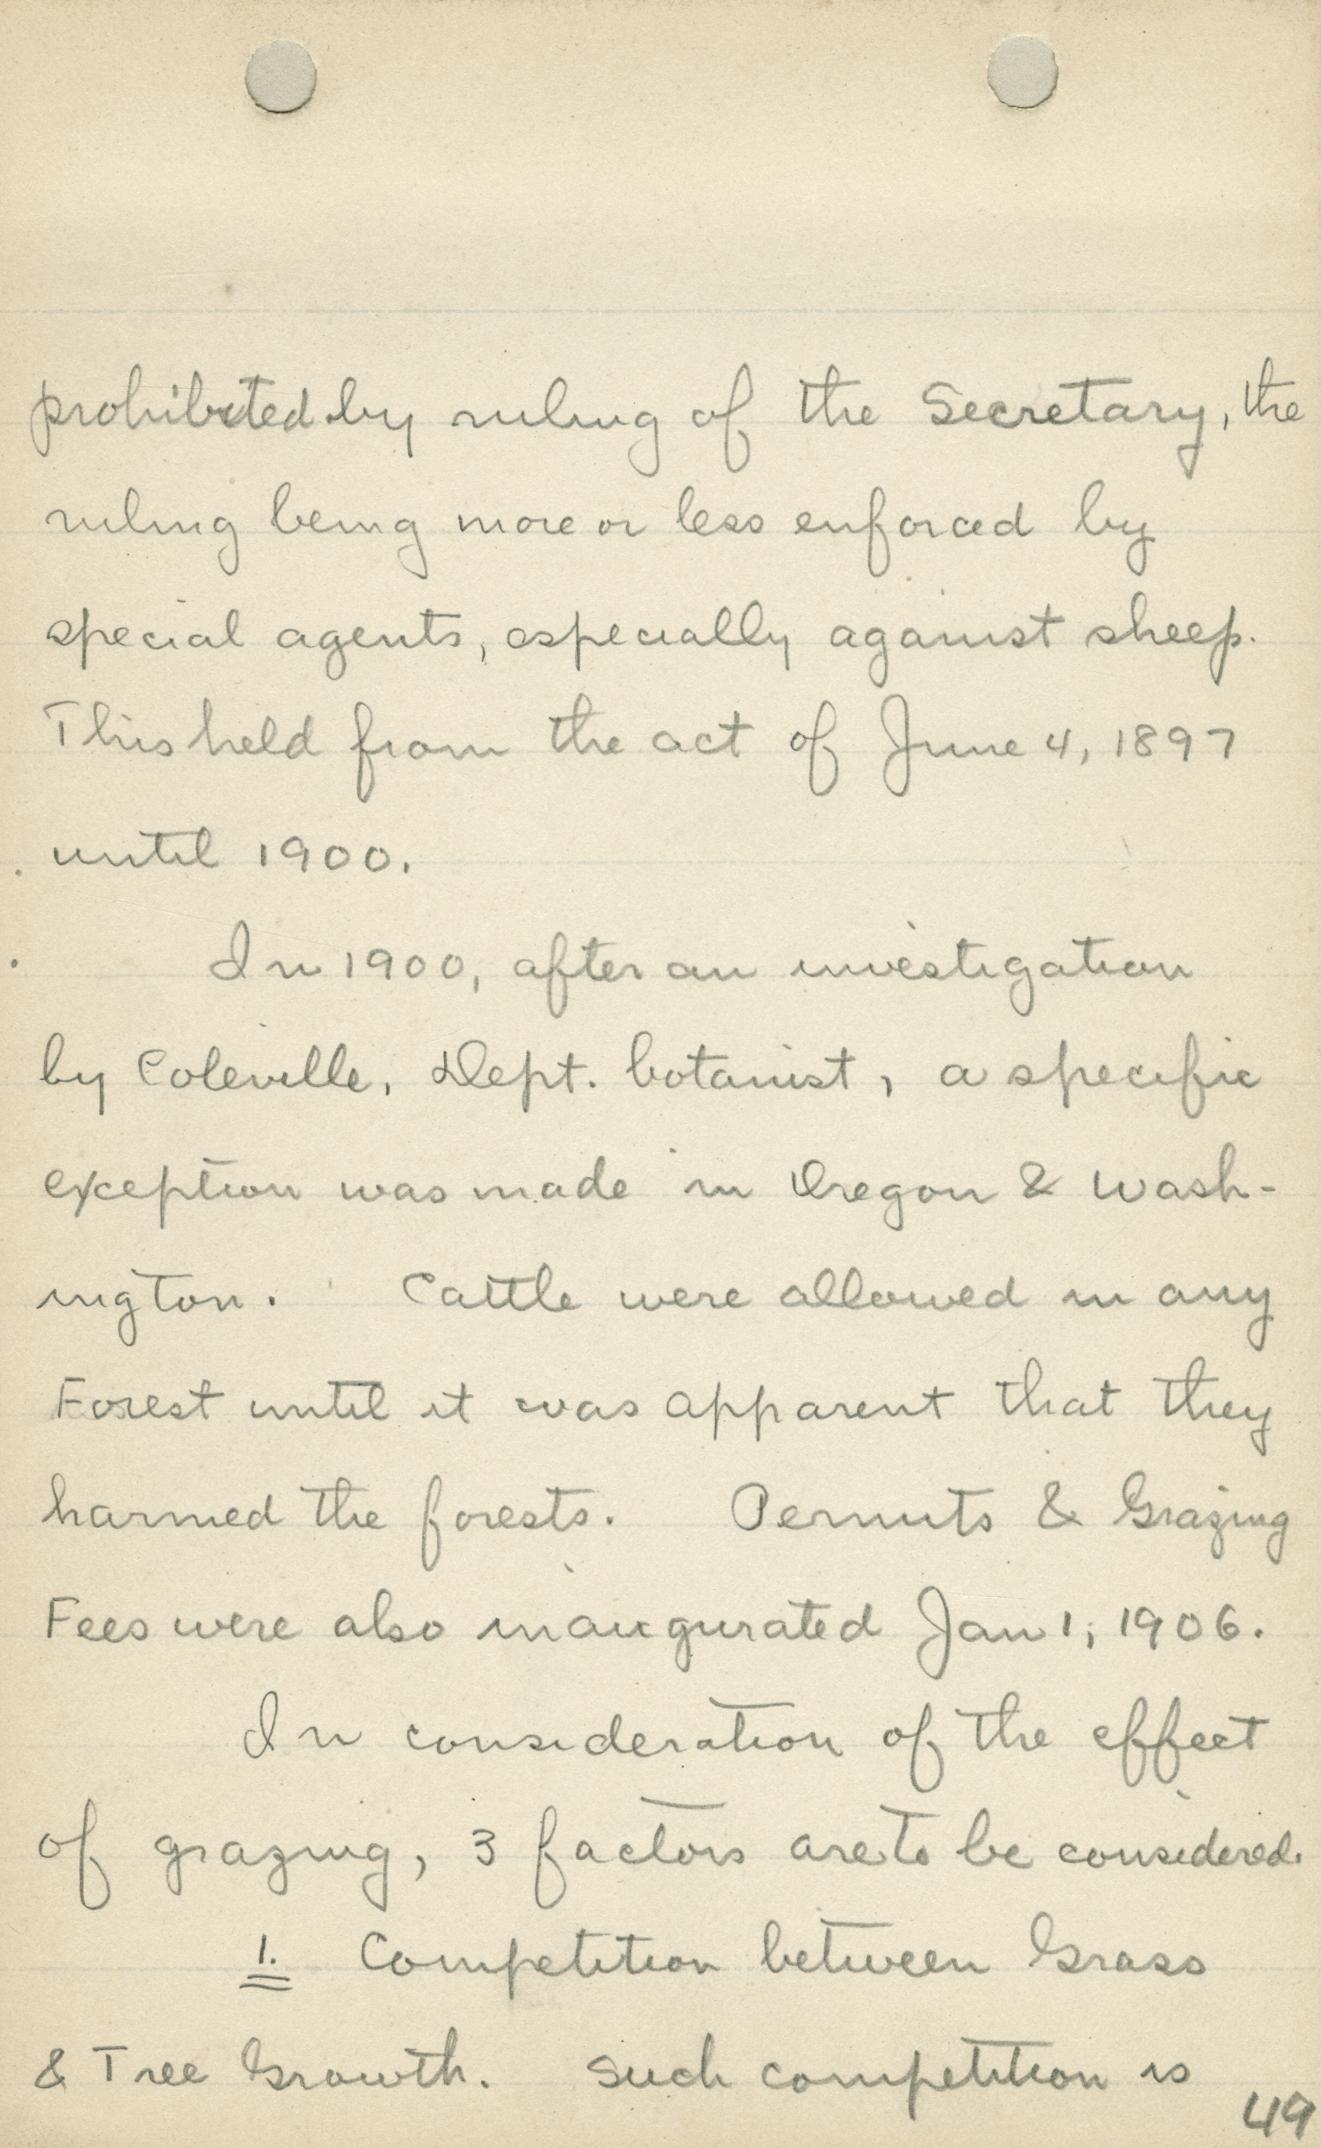 prohibited by ruling of the Secretary, the
ruling being more or less enforced by
special agents, especially against sheep.
This held from the act of June 4, 1897
until 1900.
In 1900, after an investigation
by Coleville, Dept. botanist, a specific
exception was made in Oregon & Wash-
ington. Cattle were allowed in any
Forest until it was apparent that they
harmed the forests. Permits & Grazing
Fees were also inaugurated Jan 1, 1906.
In consideration of the effect
of grazing, 3 factors are to be considered.
1. Competition between Grass
& Tree Growth. Such competition is
49